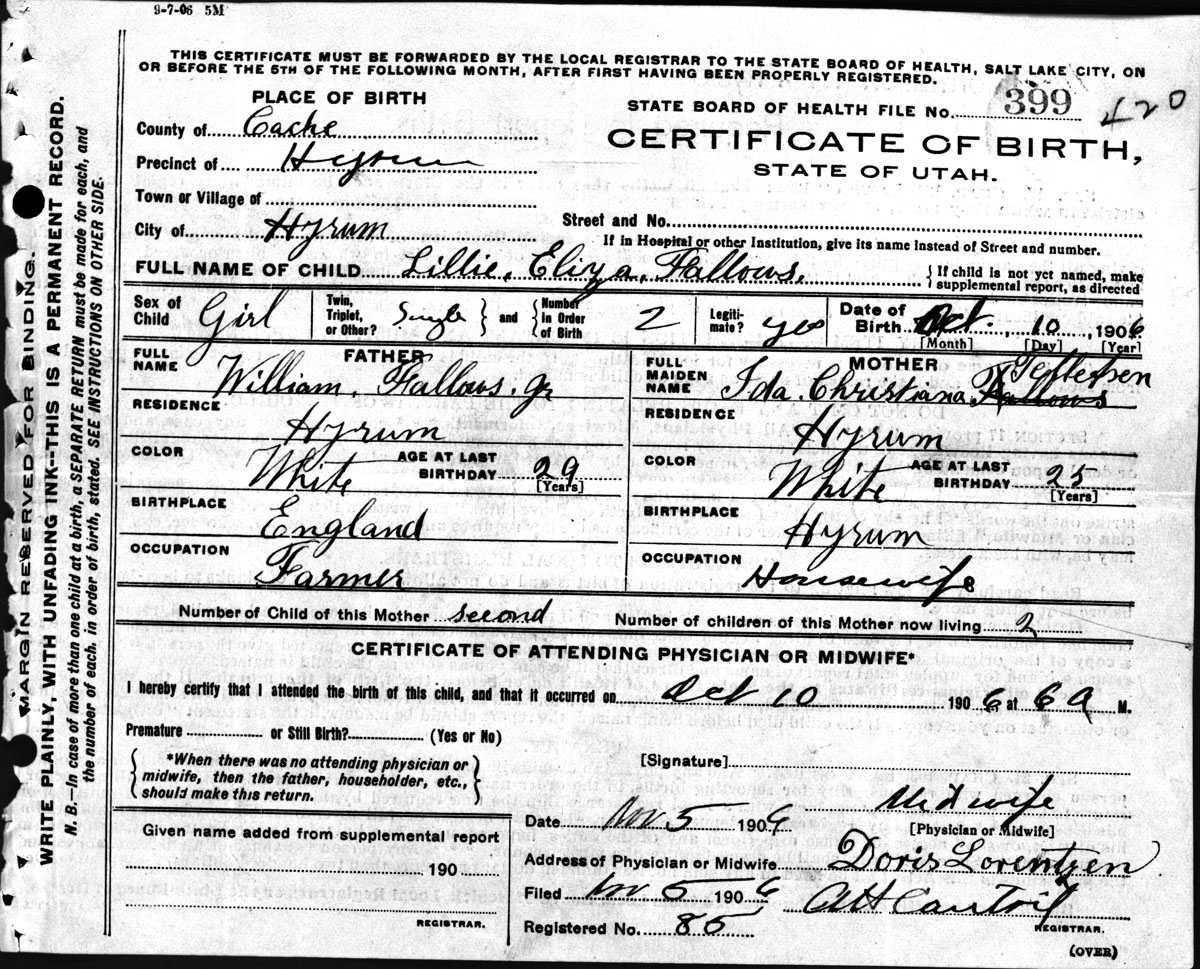 9-7-06 5M
THIS CERTIFICATE MUST BE FORWARDED BY THE LOCAL REGISTRAR TO THE STATE BOARD OF HEALTH, SALT LAKE CITY, ON
OR BEFORE THE 5TH OF THE FOLLOWING MONTH, AFTER FIRST HAVING BEEN PROPERLY REGISTERED.
PLACE OF BIRTH
County of Cache
Precinct of Hyrum
Town or Village of
City of Hyrum
STATE BOARD OF HEALTH FILE No. 399 420
CERTIFICATE OF BIRTH,
STATE OF UTAH.
Street and No.
If in Hospital or other Institution, give its name instead of Street and number.
FULL NAME OF CHILD Lillie, Eliza, Fallows. {If child is not yet named, make
supplemental report, as directed
Sex of Child Girl Twin, Triplet, or Other? Single and Number in Order of Birth 2 Legitimate? yes Date of Birth Oct. 10, 1906
[Month] [Day] [Year]
FATHER
FULL NAME William. Fallows. Jr
RESIDENCE Hyrum
COLOR White AGE AT LAST BIRTHDAY 29
[Years]
BIRTHPLACE England
OCCUPATION Farmer
MOTHER
FULL MAIDEN NAME Ida. Christiana. Fallows
RESIDENCE Hyrum
COLOR White AGE AT LAST BIRTHDAY 25
[Years]
BIRTHPLACE Hyrum
OCCUPATION Housewife
Number of Child of this Mother second Number of children of this Mother now living 2
CERTIFICATE OF ATTENDING PHYSICIAN OR MIDWIFE*
I hereby certify that I attended the birth of this child, and that it occurred on Oct 10 1906 at 6 A M.
Premature or Still Birth? (Yes or No)
{*When there was no attending physician or
midwife, then the father, householder, etc.,
should make this return.}
[Signature]
Midwife
[Physician or Midwife]
Date Nov 5 1906
Address of Physician or Midwife Doris Lorentzen
Filed Nov 5 1906
REGISTRAR.
Registered No. 85
Given name added from supplemental report
190
REGISTRAR.
(OVER)
MARGIN RESERVED FOR BINDING.
WRITE PLAINLY, WITH UNFADING INK--THIS IS A PERMANENT RECORD.
N. B.—In case of more than one child at a birth, a SEPARATE RETURN must be made for each, and
the number of each, in order of birth, stated. SEE INSTRUCTIONS ON OTHER SIDE.